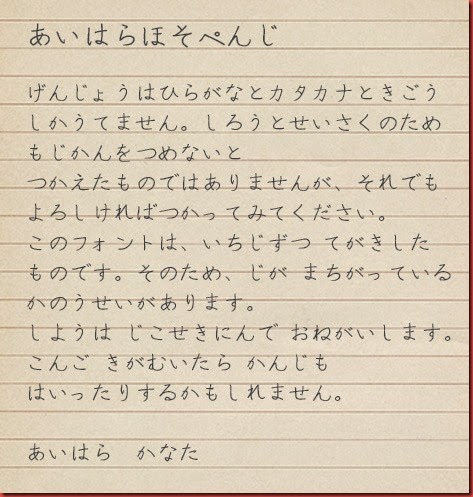 あいはらほそぺんじ
げんじょうはひらがなとカタカナときごう
しかうてません。しろうとせいさくのため
もじかんをつめないと
つかえたものではありませんが、それでも
よろしければつかってみてください。
このフォントは、いちじずつ てがきした
ものです。そのため、じが まちがっている
かのうせいがあります。
しようは じこせきにんで おねがいします。
こんご きがむいたら かんじも
はいったりするかもしれません。
あいはら　かなた